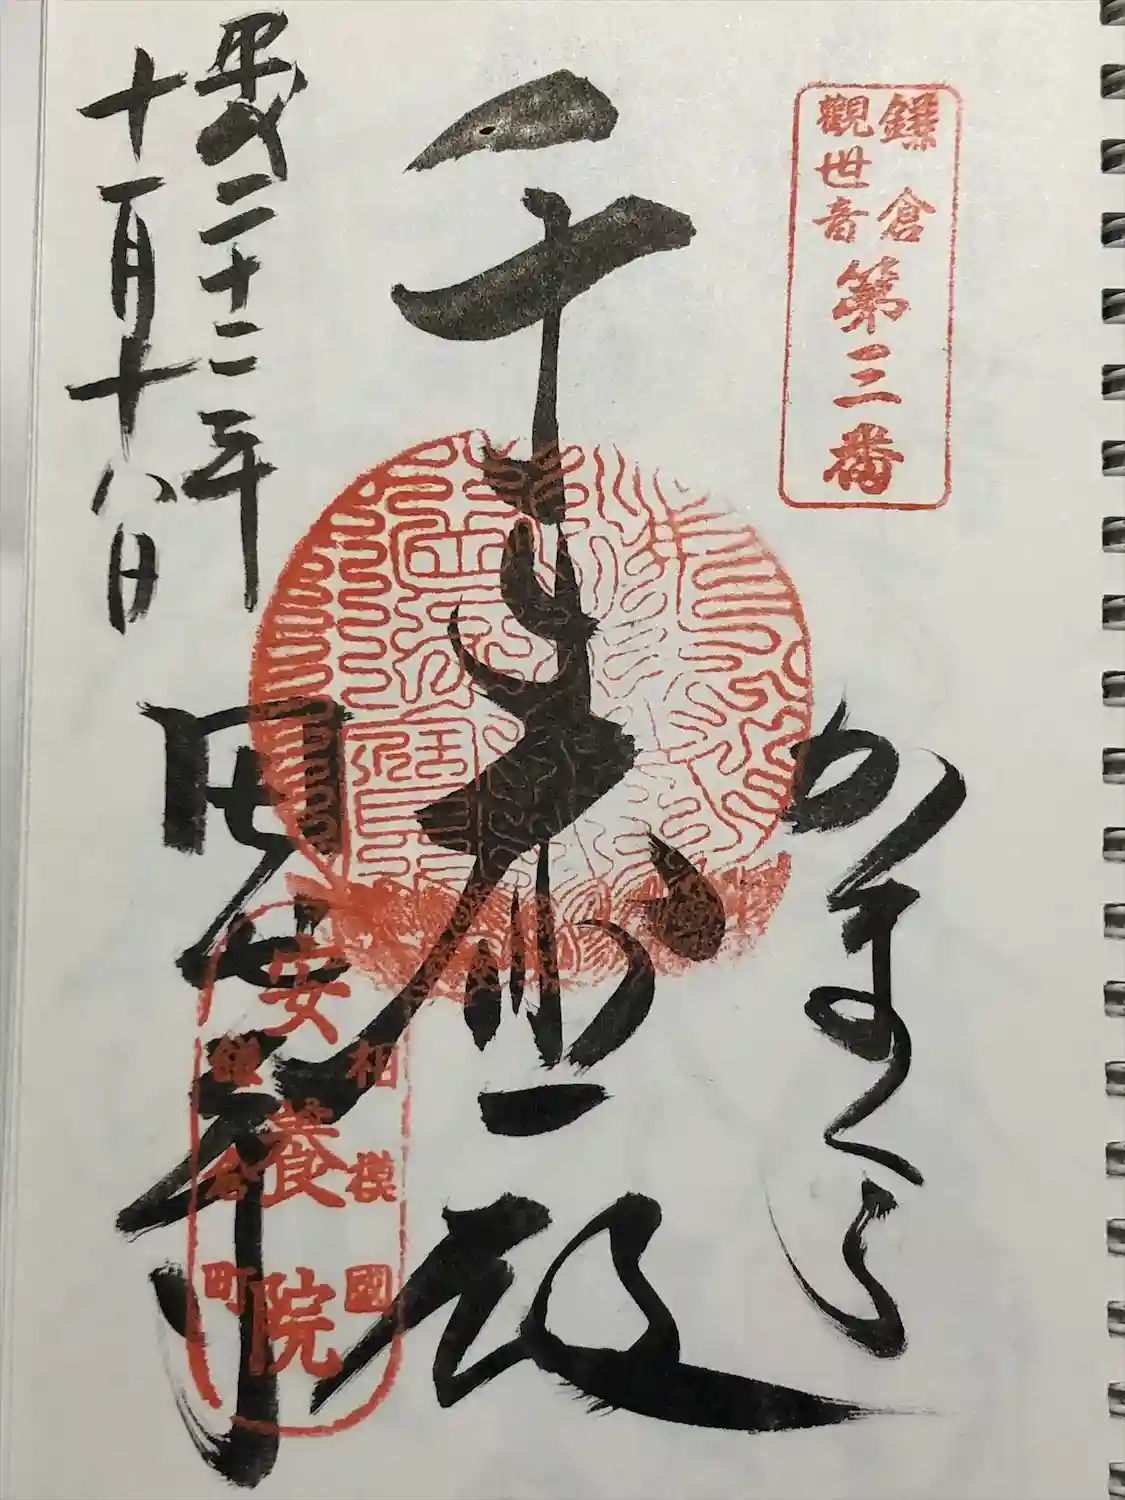 鎌倉
觀世音
第三番
かまくら
千手大悲殿
平成二十二年
十一月十八日
田代寺
相模國
安養院
鎌倉町